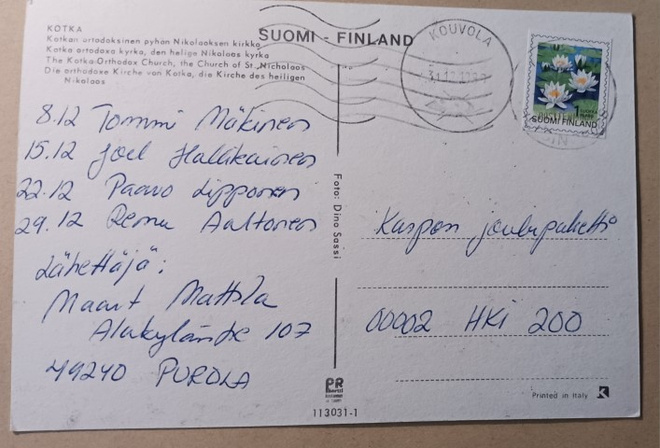 KOTKA
Kotkan ortodoksinen pyhän Nikolaoksen kirkko
Kotka ortodoxa kyrka, den helige Nikolaos kyrka
The Kotka Orthodox Church, the Church of St. Nicholaos
Die orthodoxe Kirche von Kotka, die Kirche des heiligen
Nikolaos
SUOMI - FINLAND
KOUVOLA
1
SUOMI FINLAND
8.12 Tommi Mäkinen
15.12 Joel Hallikainen
22.12 Paavo Lipponen
29.12 Remu Aaltonen
Lähettäjä:
Maarit Mattila
Alakyläntie 107
49240 PUROLA
Foto: Dino Sassi
Kaspon joulupaketti
00002 HKI 200
PR
113031-1
Printed in Italy
K